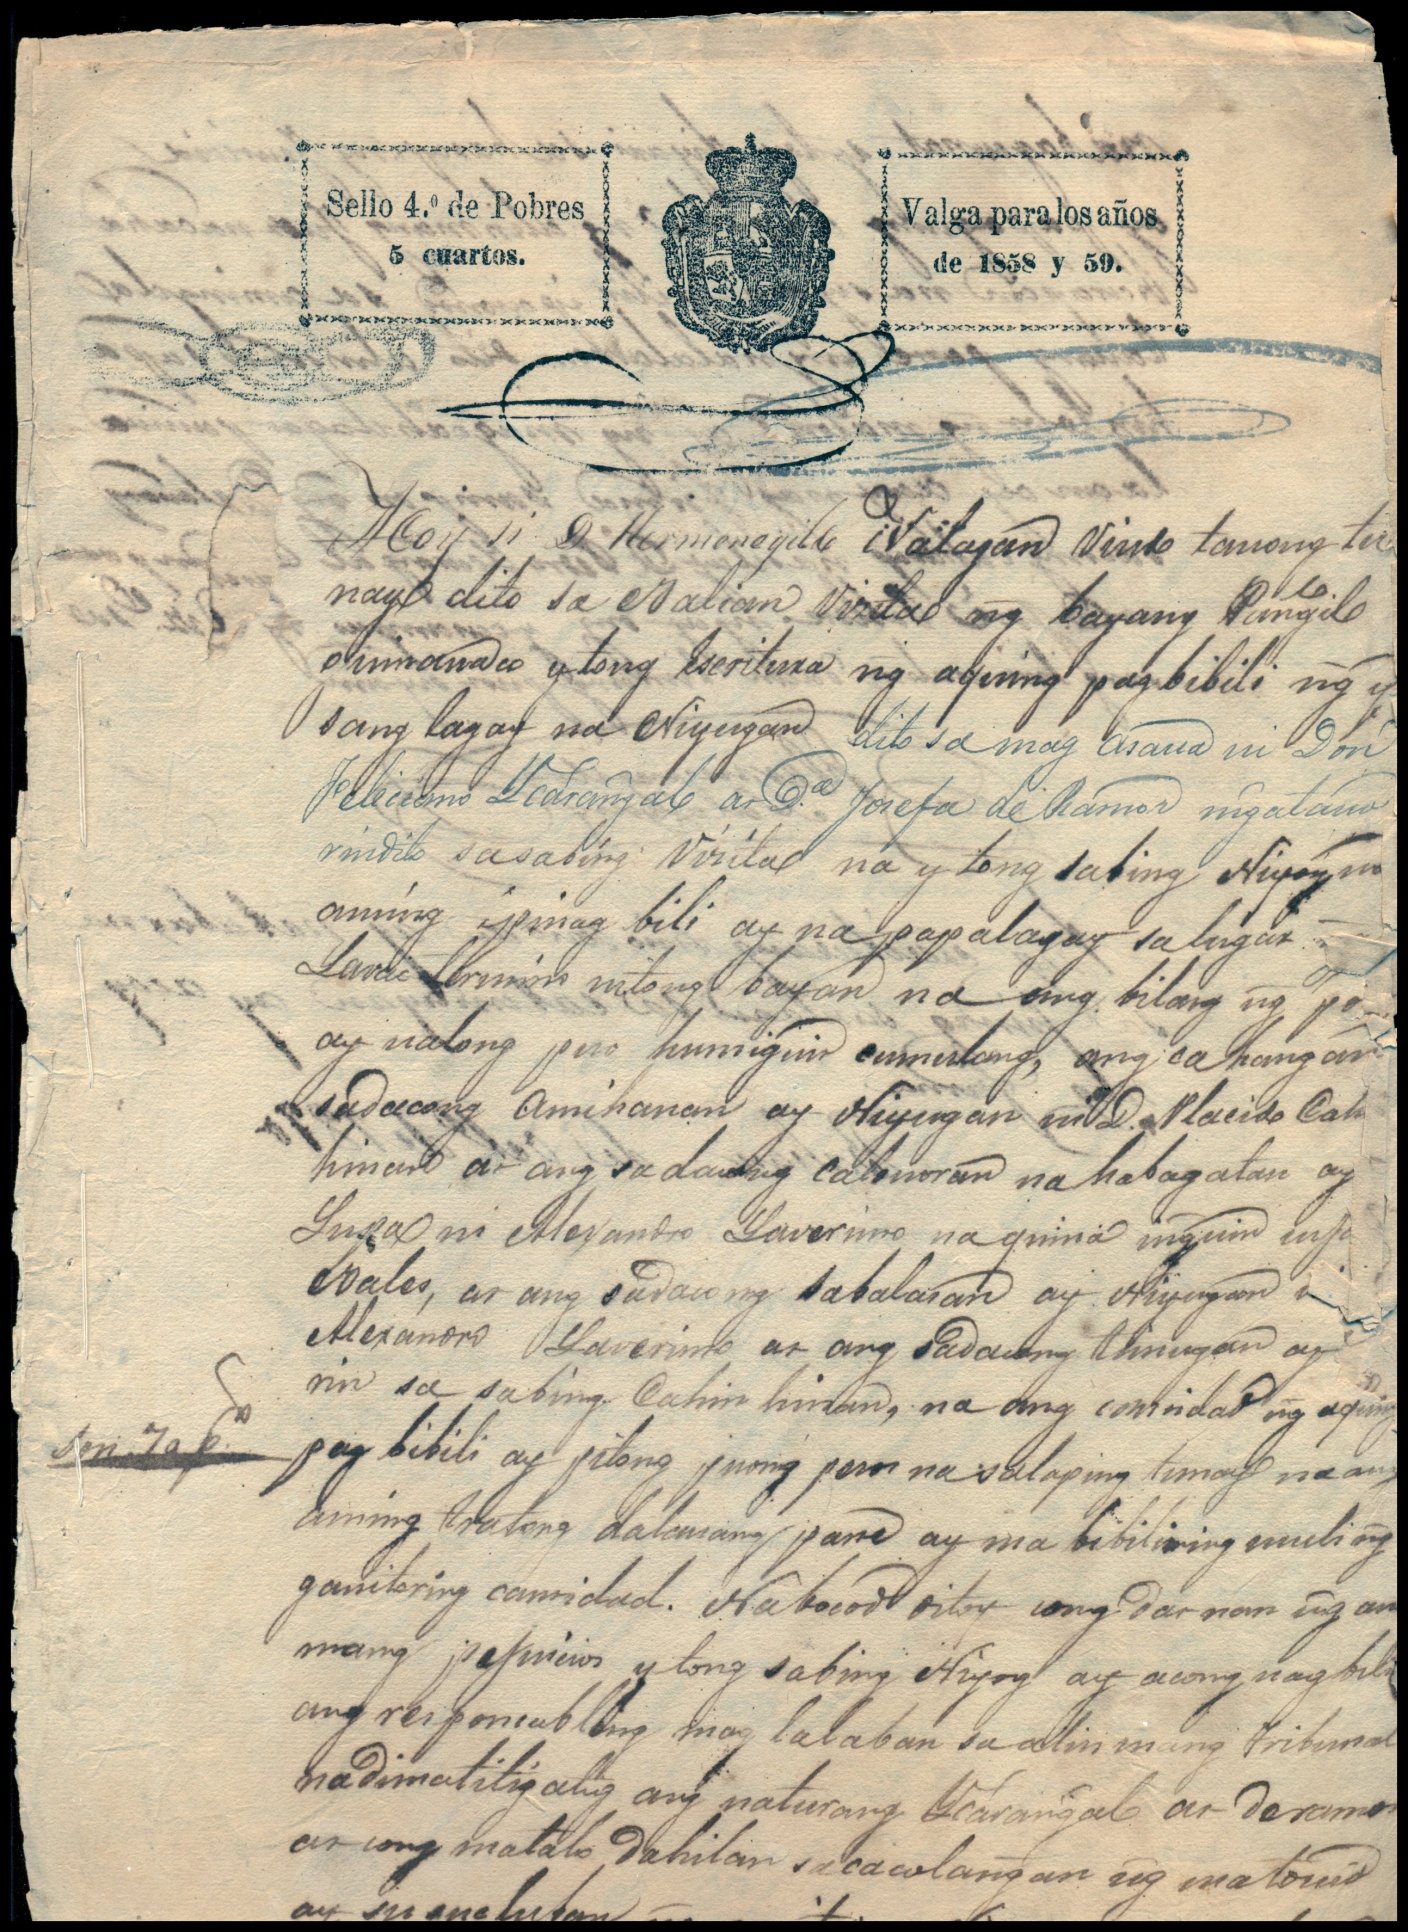 Sello 4.º de Pobres
5 cuartos.
Valga para los años
de 1858 y 59.
Acoy si D Hermenegildo Valagan Viudo tauong tu
nay dito sa Balian Visita ng bayang Pangil
guinauaco ytong Escritura ng aquing pagbibili ng y
sang lagay na Niyugan dito sa mag asaua ni Don
Feliciano at D.ª Josefa de Ramos mga tauo
rin dito sa sabing Visita na ytong sabing Niyog na
aming ipinag bili ay na papalagay sa lugar
nitong bayan na ang bilang ng
ay ualong puo humiguit cumulang, ang ca hangan
sa dacong Amihanan ay Niyugan ni D. Placido Cah
hinan at ang sa dacong calonoran na habagatan ay
Lupa ni Alexandro Laverinto na
Bales, at ang sa dacong sabalasan ay Niyugan
Alexandro Laverinto at ang sa dacong timugan ay
rin sa sabing Cahin hinan, na ang cantidad ng aquing
son 70 p.s
pag bibili ay pitong puong pesos na salaping tunay na ang
aming tratong dalauang panó ay ma bibiling muli ng
ganitoring cantidad. Na bocod ditoy cong datnan ng an
mang pejuicios ytong sabing Niyog ay acong nag bili
ang responsableng mag lalaban sa alin mang tribunal
na dimatitigatig ang naturang at de ramos
at cong matalo dahilan sa cacolangan ng matouid
ay